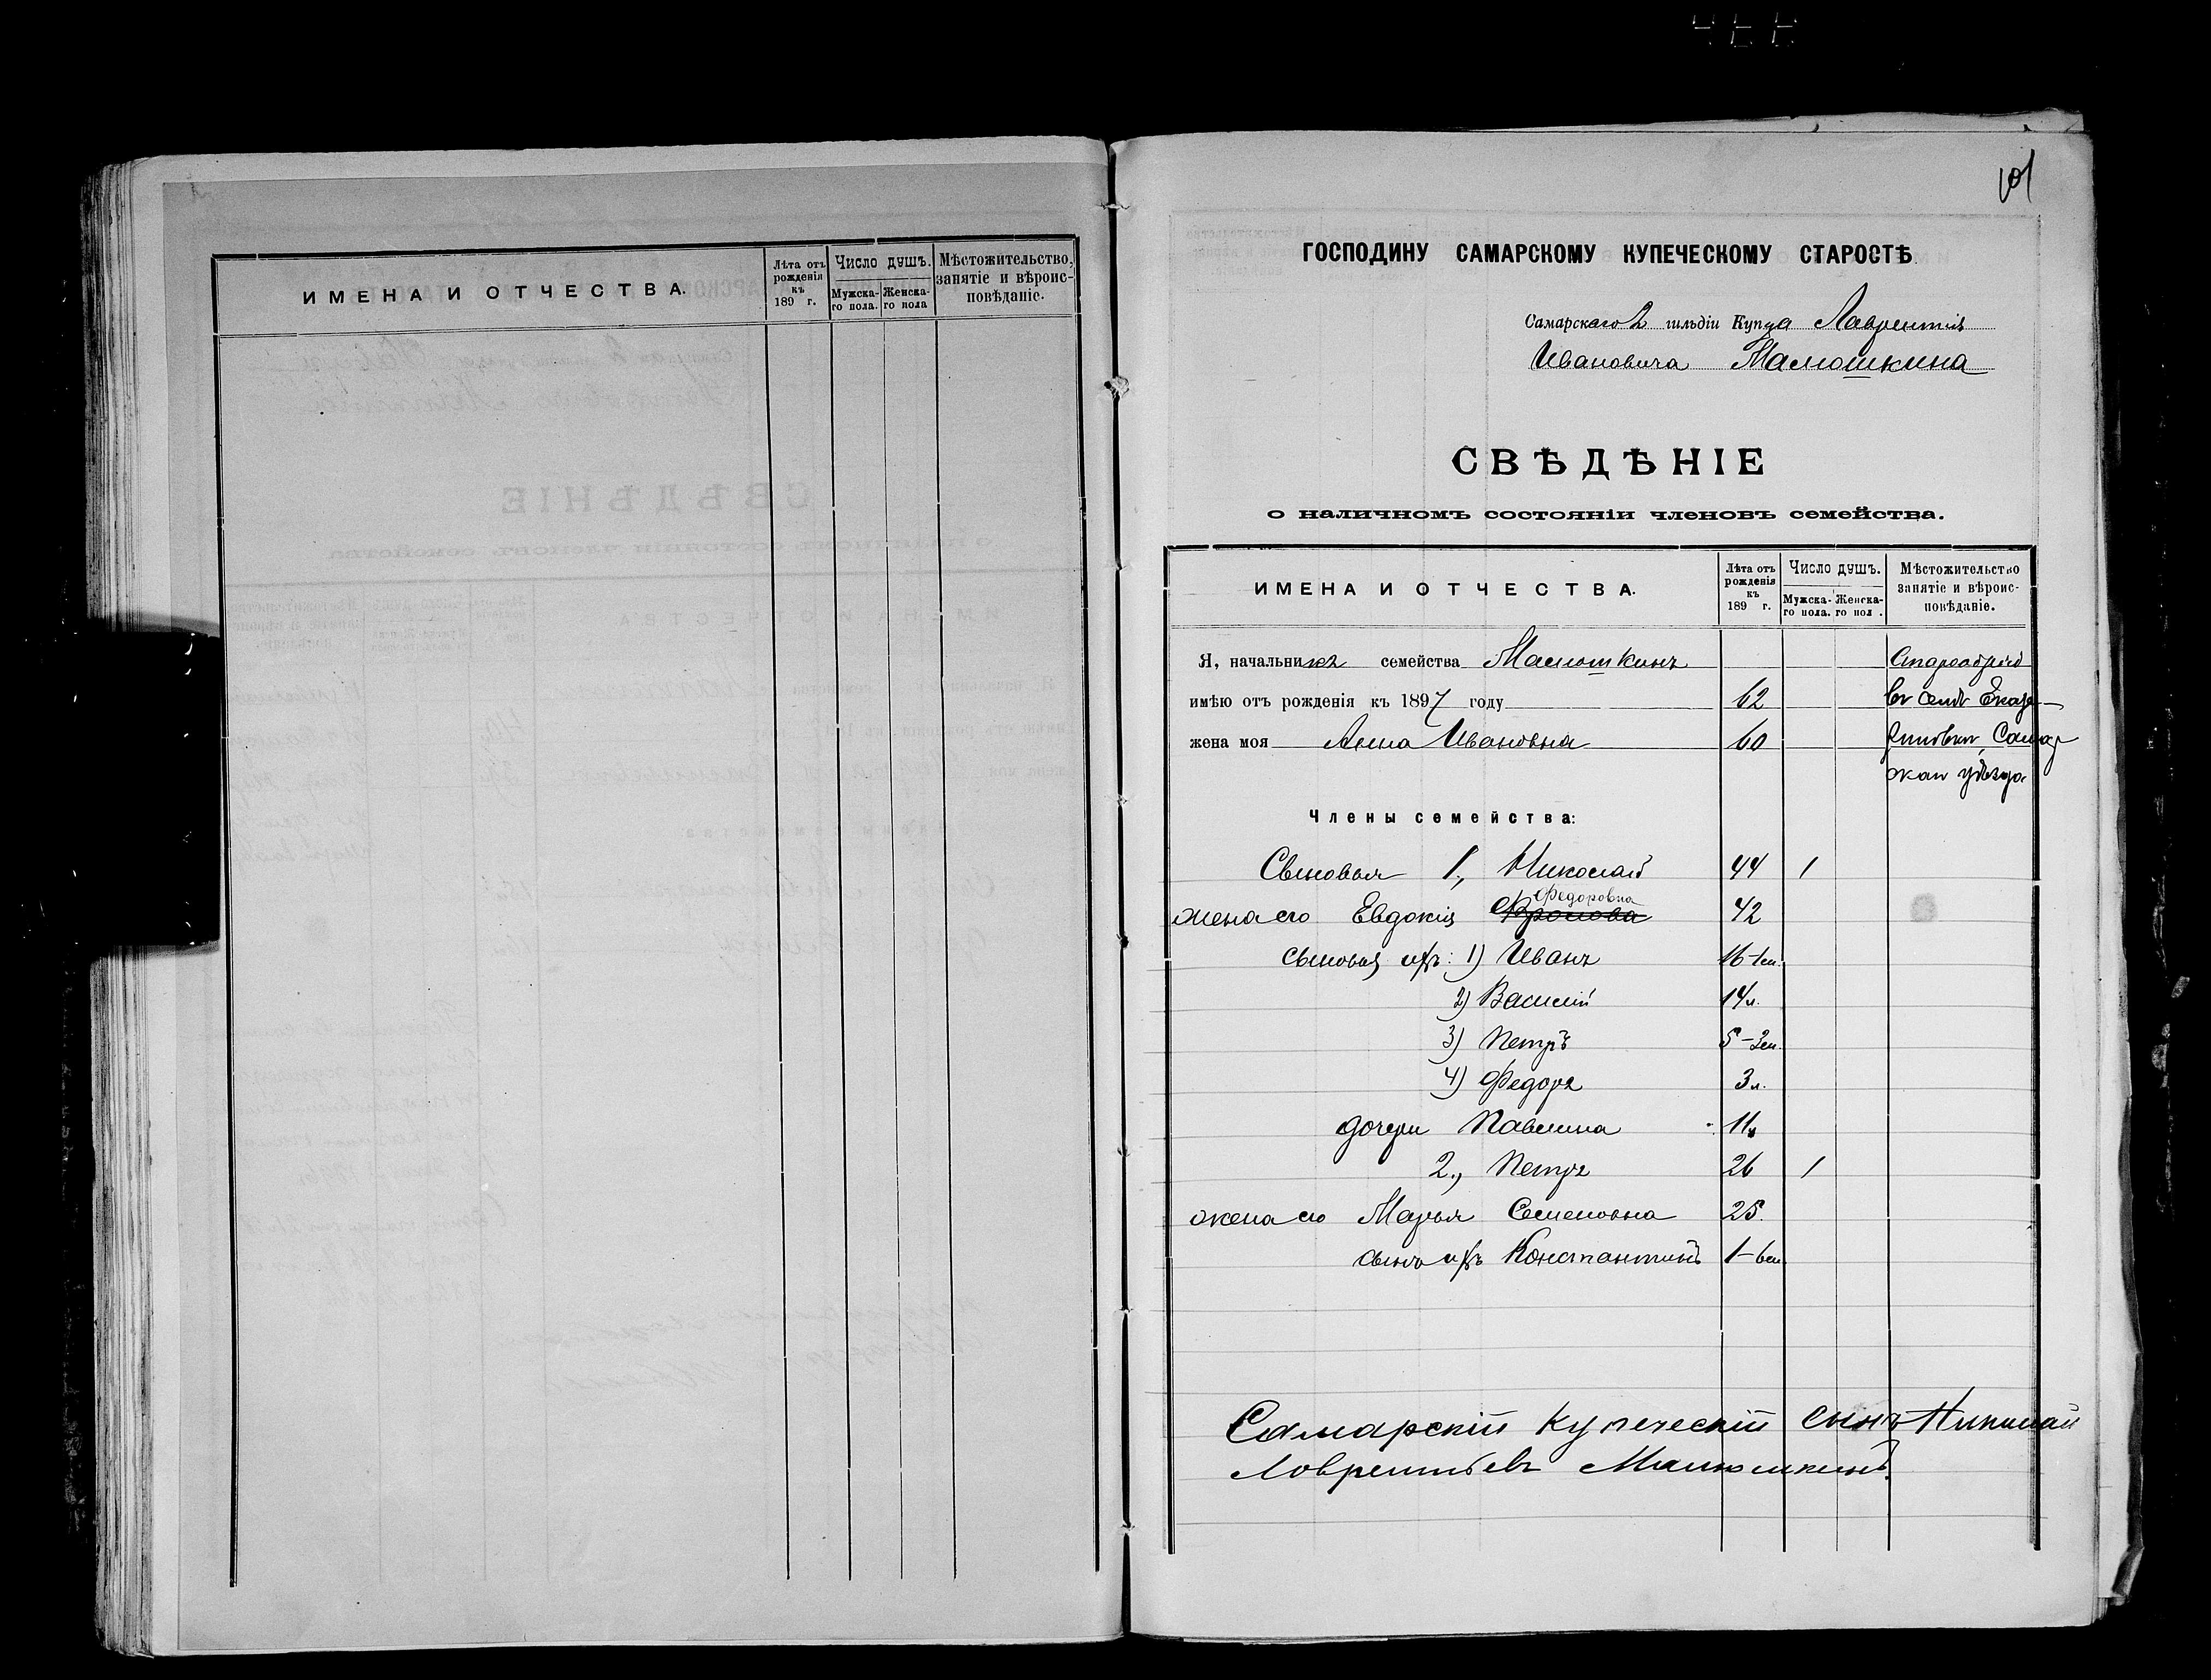 ИМЕНА И ОТЧЕСТВА.
Лѣта отъ рожденія къ 189 г.
Число душъ.
Мужска-го пола.
Женска-го пола
Мѣстожительство, занятіе и вѣроис-повѣданіе.
101
ГОСПОДИНУ САМАРСКОМУ КУПЕЧЕСКОМУ СТАРОСТѢ
Самарскаго 2 гильдіи Купца Лаврентія
Ивановича Малюшкина
СВѢДѢНІЕ
о наличномъ состояніи членовъ семейства.
ИМЕНА И ОТЧЕСТВА.
Лѣта отъ рожденія къ 189 г.
Число душъ.
Мужска-го пола.
Женска-го пол .
Мѣстожительство занятіе и вѣроис-повѣданіе.
Я, начальникъ семейства Малюшкинъ
имѣю отъ рожденія къ 1897 году 62
жена моя Анна Ивановна 60
Старообряд
въ селѣ Екате-
риновки, Самар
скаго уѣзда
Члены семейства:
Сыновья 1, Николай 44 1
Федоровна
жена его Евдокія Фролова 42
сыновья ихъ: 1) Иванъ 16-1
2) Василій 14 л.
3) Петръ 5-3
4) Федоръ 3 л.
дочери Павлина 11
2., Петръ 26 1
жена его Марья Семеновна 25.
сынъ ихъ Константинъ 1-6
Самарскій купеческій сынъ Николай
Лаврентьевъ Малюшкинъ.